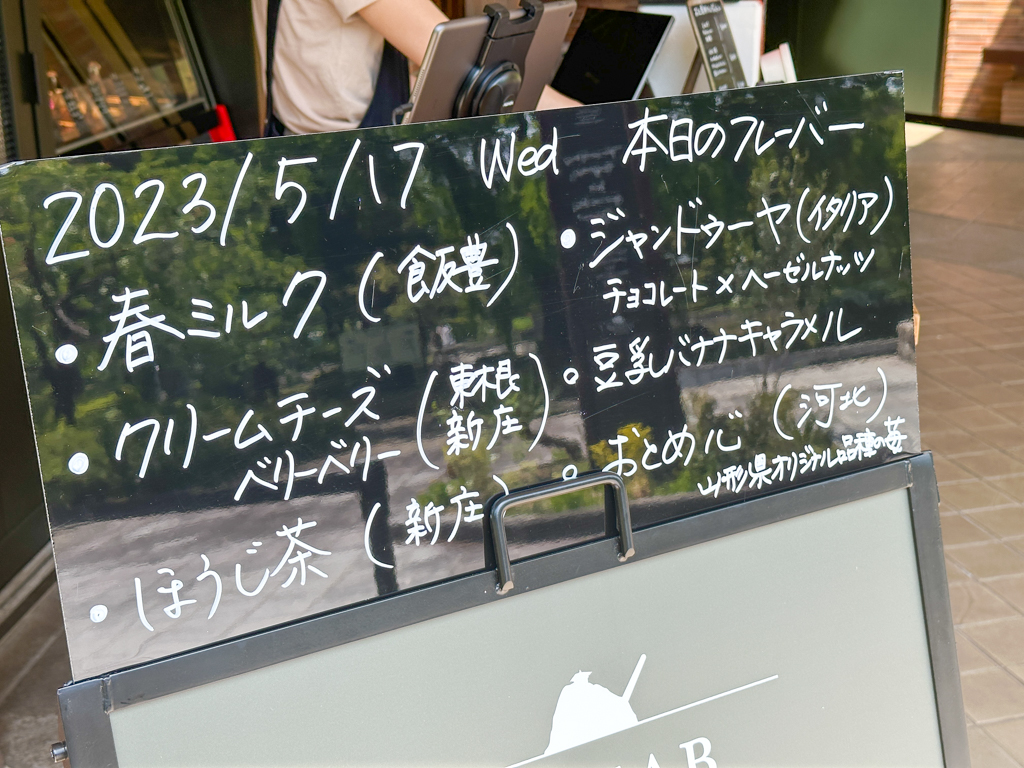 2023/5/17 Wed 本日のフレーバー
• 春ミルク (飯豊)
• クリームチーズベリーベリー (東根 新庄)
• ほうじ茶 (新庄)
• ジャンドゥーヤ(イタリア)
チョコレート×ヘーゼルナッツ
• 豆乳バナナキャラメル
• おとめ心 (河北)
山形県オリジナル品種の苺